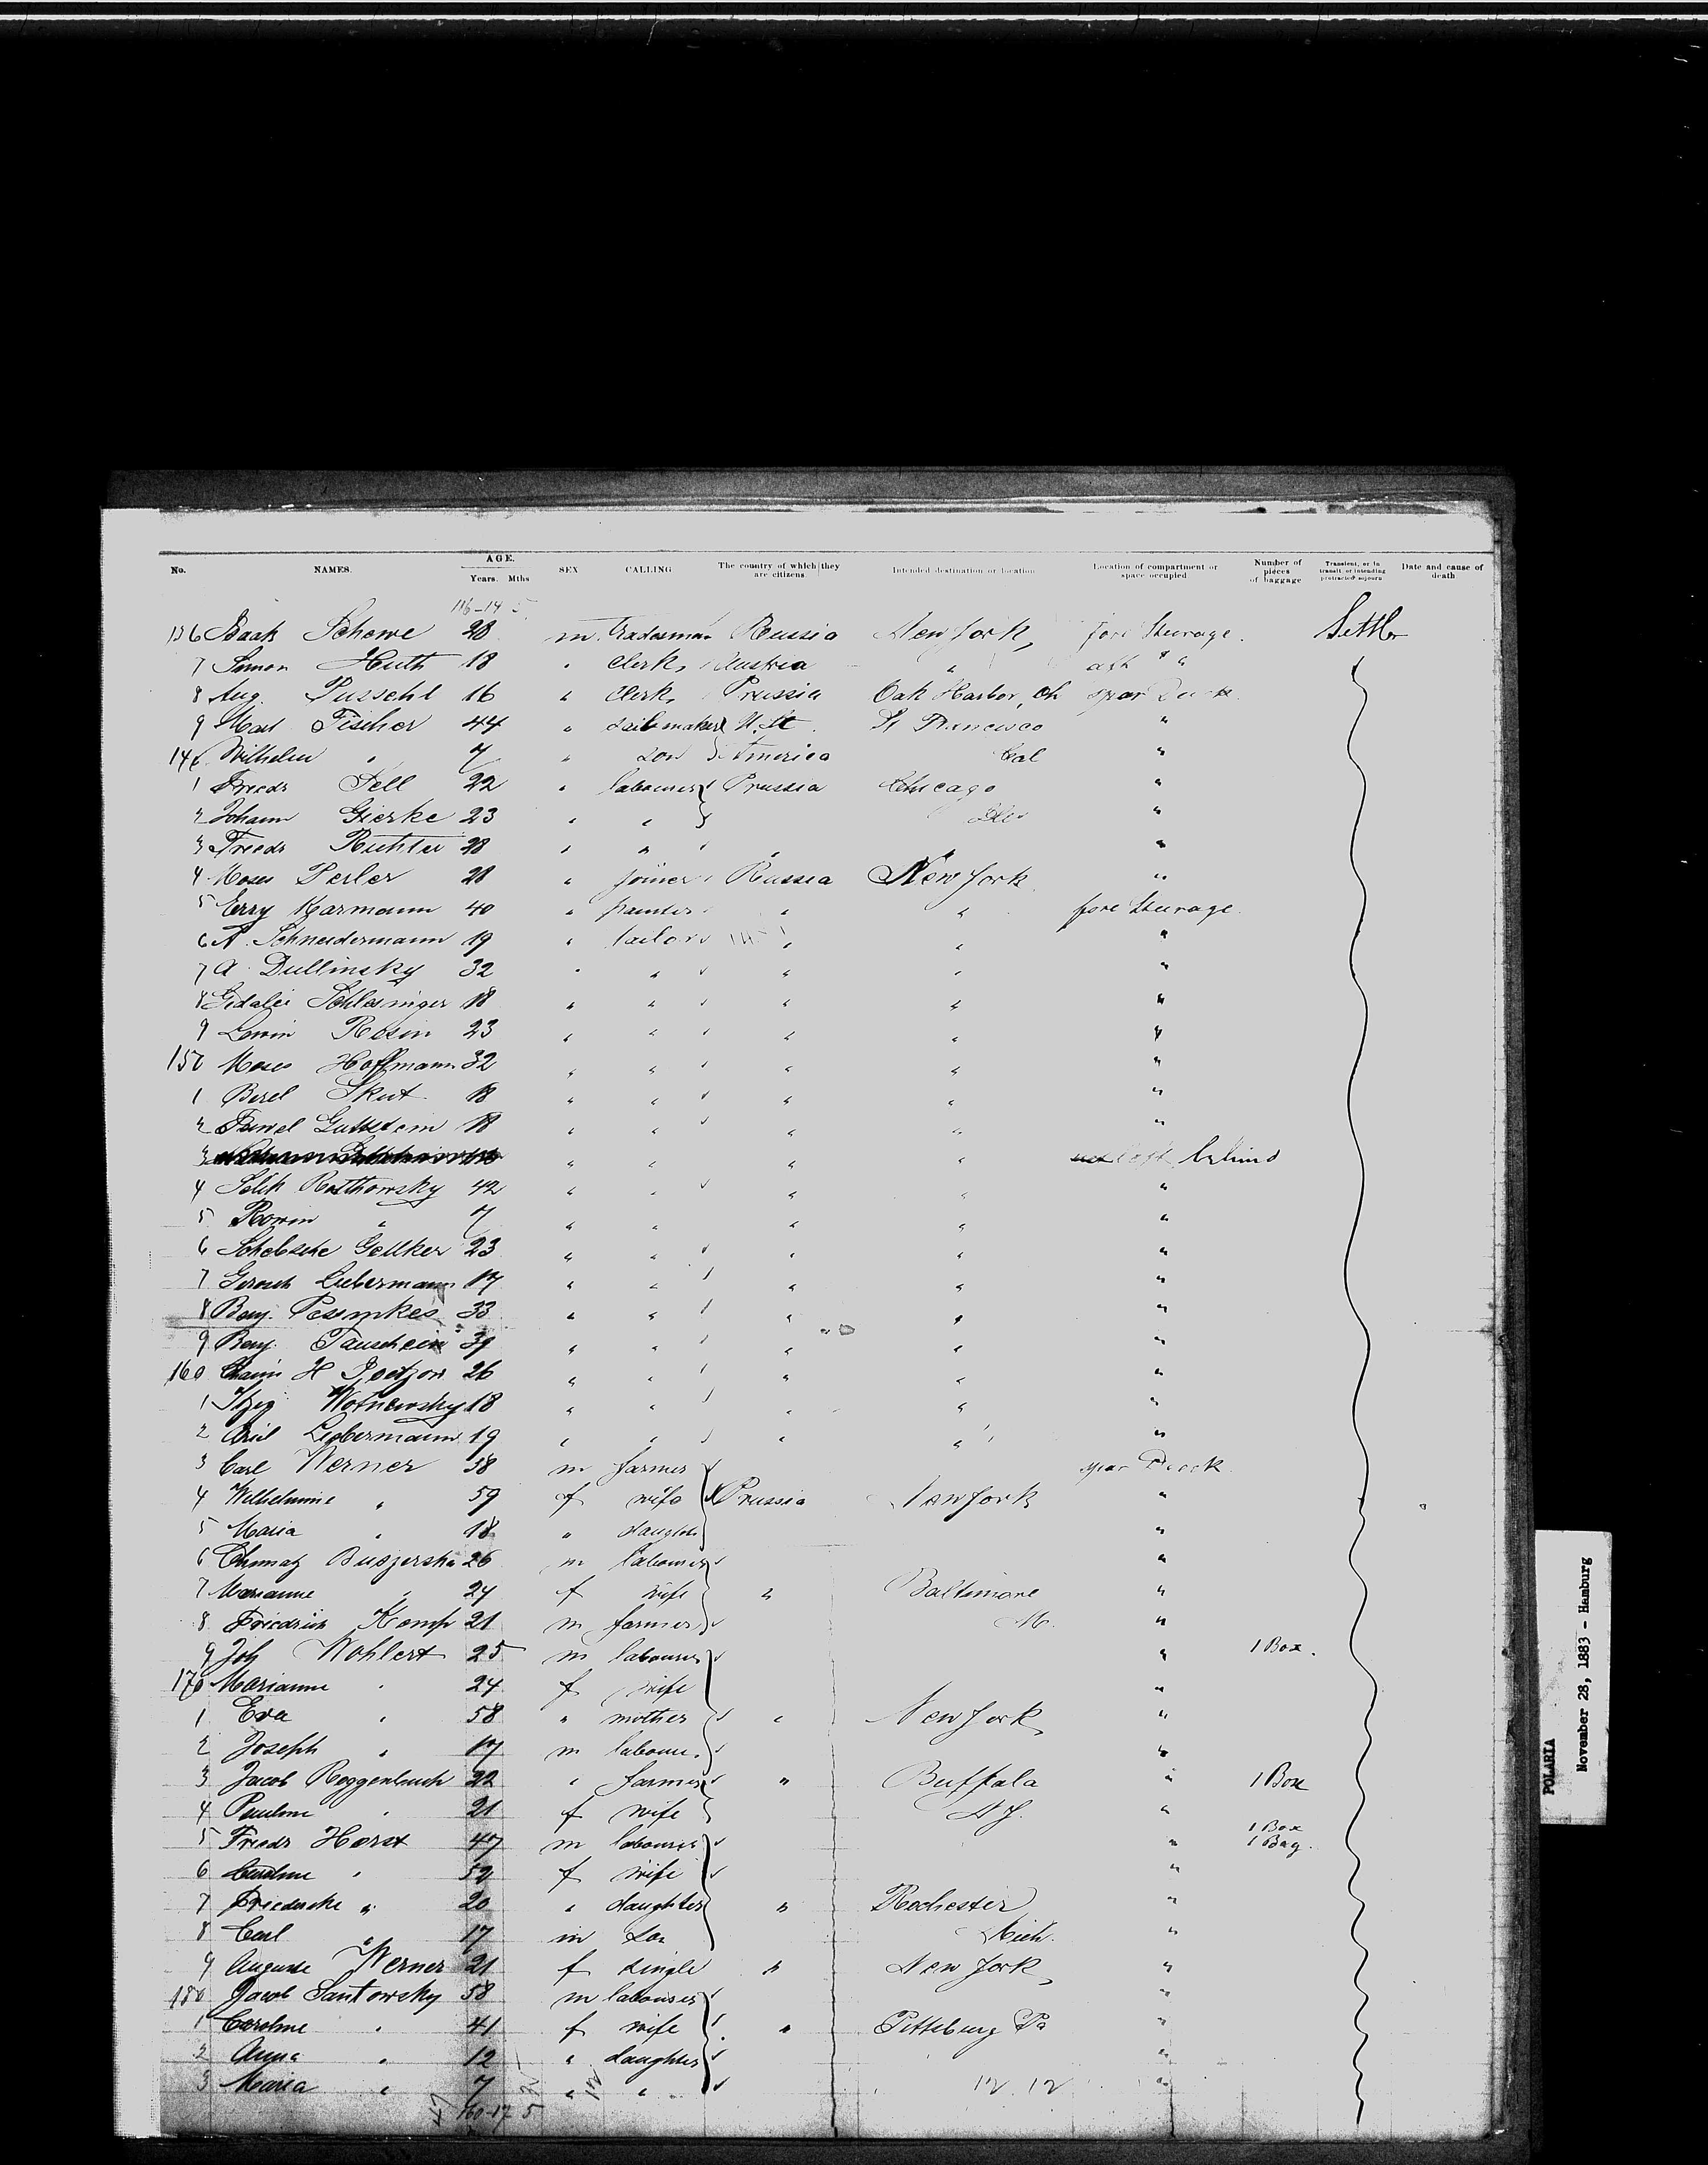 No. NAMES. AGE. Years. Mths SEX CALLING The country of which they are citizens Intended destination or location Location of compartment or space occupied Number of pieces of baggage Transient, or in transit, or intending protracted sojourn Date and cause of death
116-14 5
136 Isaak Schewe 28 m tradesman Russia New York, fore Steurage. Settler
7 Simon Huth 18 " clerk, Austria " aft " "
8 Aug. Pusschl 16 " clerk, Prussia Oak Harbor, Oh spar Deck
9 Mart Fischer 44 " sailmaker U. St. St Francisco "
140 Wilhelm " 7 " son America Cal "
1 Friedr Fell 22 " labourer Prussia Chicago "
2 Johann Gierke 23 " " Ills "
3 Friedr Richter 28 " " " "
4 Moses Perler 28 " joiner Russia New York "
5 Erry Karmann 40 " painter " " fore Steurage.
6 A. Schneidermann 19 " tailor " " "
7 A. Dullinsky 32 " " " " "
8 Gedalie Schlesinger 18 " " " " "
9 Lewin Rosin 23 " " " " "
150 Moses Hoffmann 32 " " " " "
1 Berel Skut 18 " " " " "
2 Fawel Guttstein 18 " " " " "
3 " " " " left behind
4 Selik Rostkowsky 42 " " " " "
5 Rowin " 7 " " " " "
6 Schebsche Gellker 23 " " " " "
7 Gerosch Liebermann 17 " " " " "
8 Benj. Pesempkes 33 " " " " "
9 Benj. Tauschein 39 " " " " "
160 Chaim H 26 " " " " "
1 Itzig Wotnewsky 18 " " " " "
2 Ariel Liebermann 19 " " " " "
3 Carl Werner 58 m farmer spar Deck
4 Wilhelmine " 59 f wife Prussia New York "
5 Maria " 18 " daughter "
6 26 m labourer "
7 Marianne " 24 f wife " Baltimore "
8 Friedrich Kemp 21 m farmer M. "
9 Joh Wohlert 25 m labourer " 1 Box.
170 Marianne " 24 f wife "
1 Eva " 58 " mother " New York, "
2 Joseph " 17 m labour. "
3 Jacob Roggenbuch 22 " farmer " Buffala " 1 Box
4 Pauline " 21 f wife N Y. "
5 Friedr Horst 47 m labourer " 1 Box 1 Bag.
6 Caroline " 52 f wife "
7 Friedericke " 20 " daughter " Rochester "
8 Carl " 17 m son Mich. "
9 Auguste Werner 21 f single " New York, "
180 Jacob Santowsky 58 m labourer "
1 Caroline " 41 f wife " Pittsburg Pa "
2 Anna " 12 " daughter "
3 Maria " 7 " " 12 12 "
47 160-17 5
POLARIA
November 28, 1883 - Hamburg